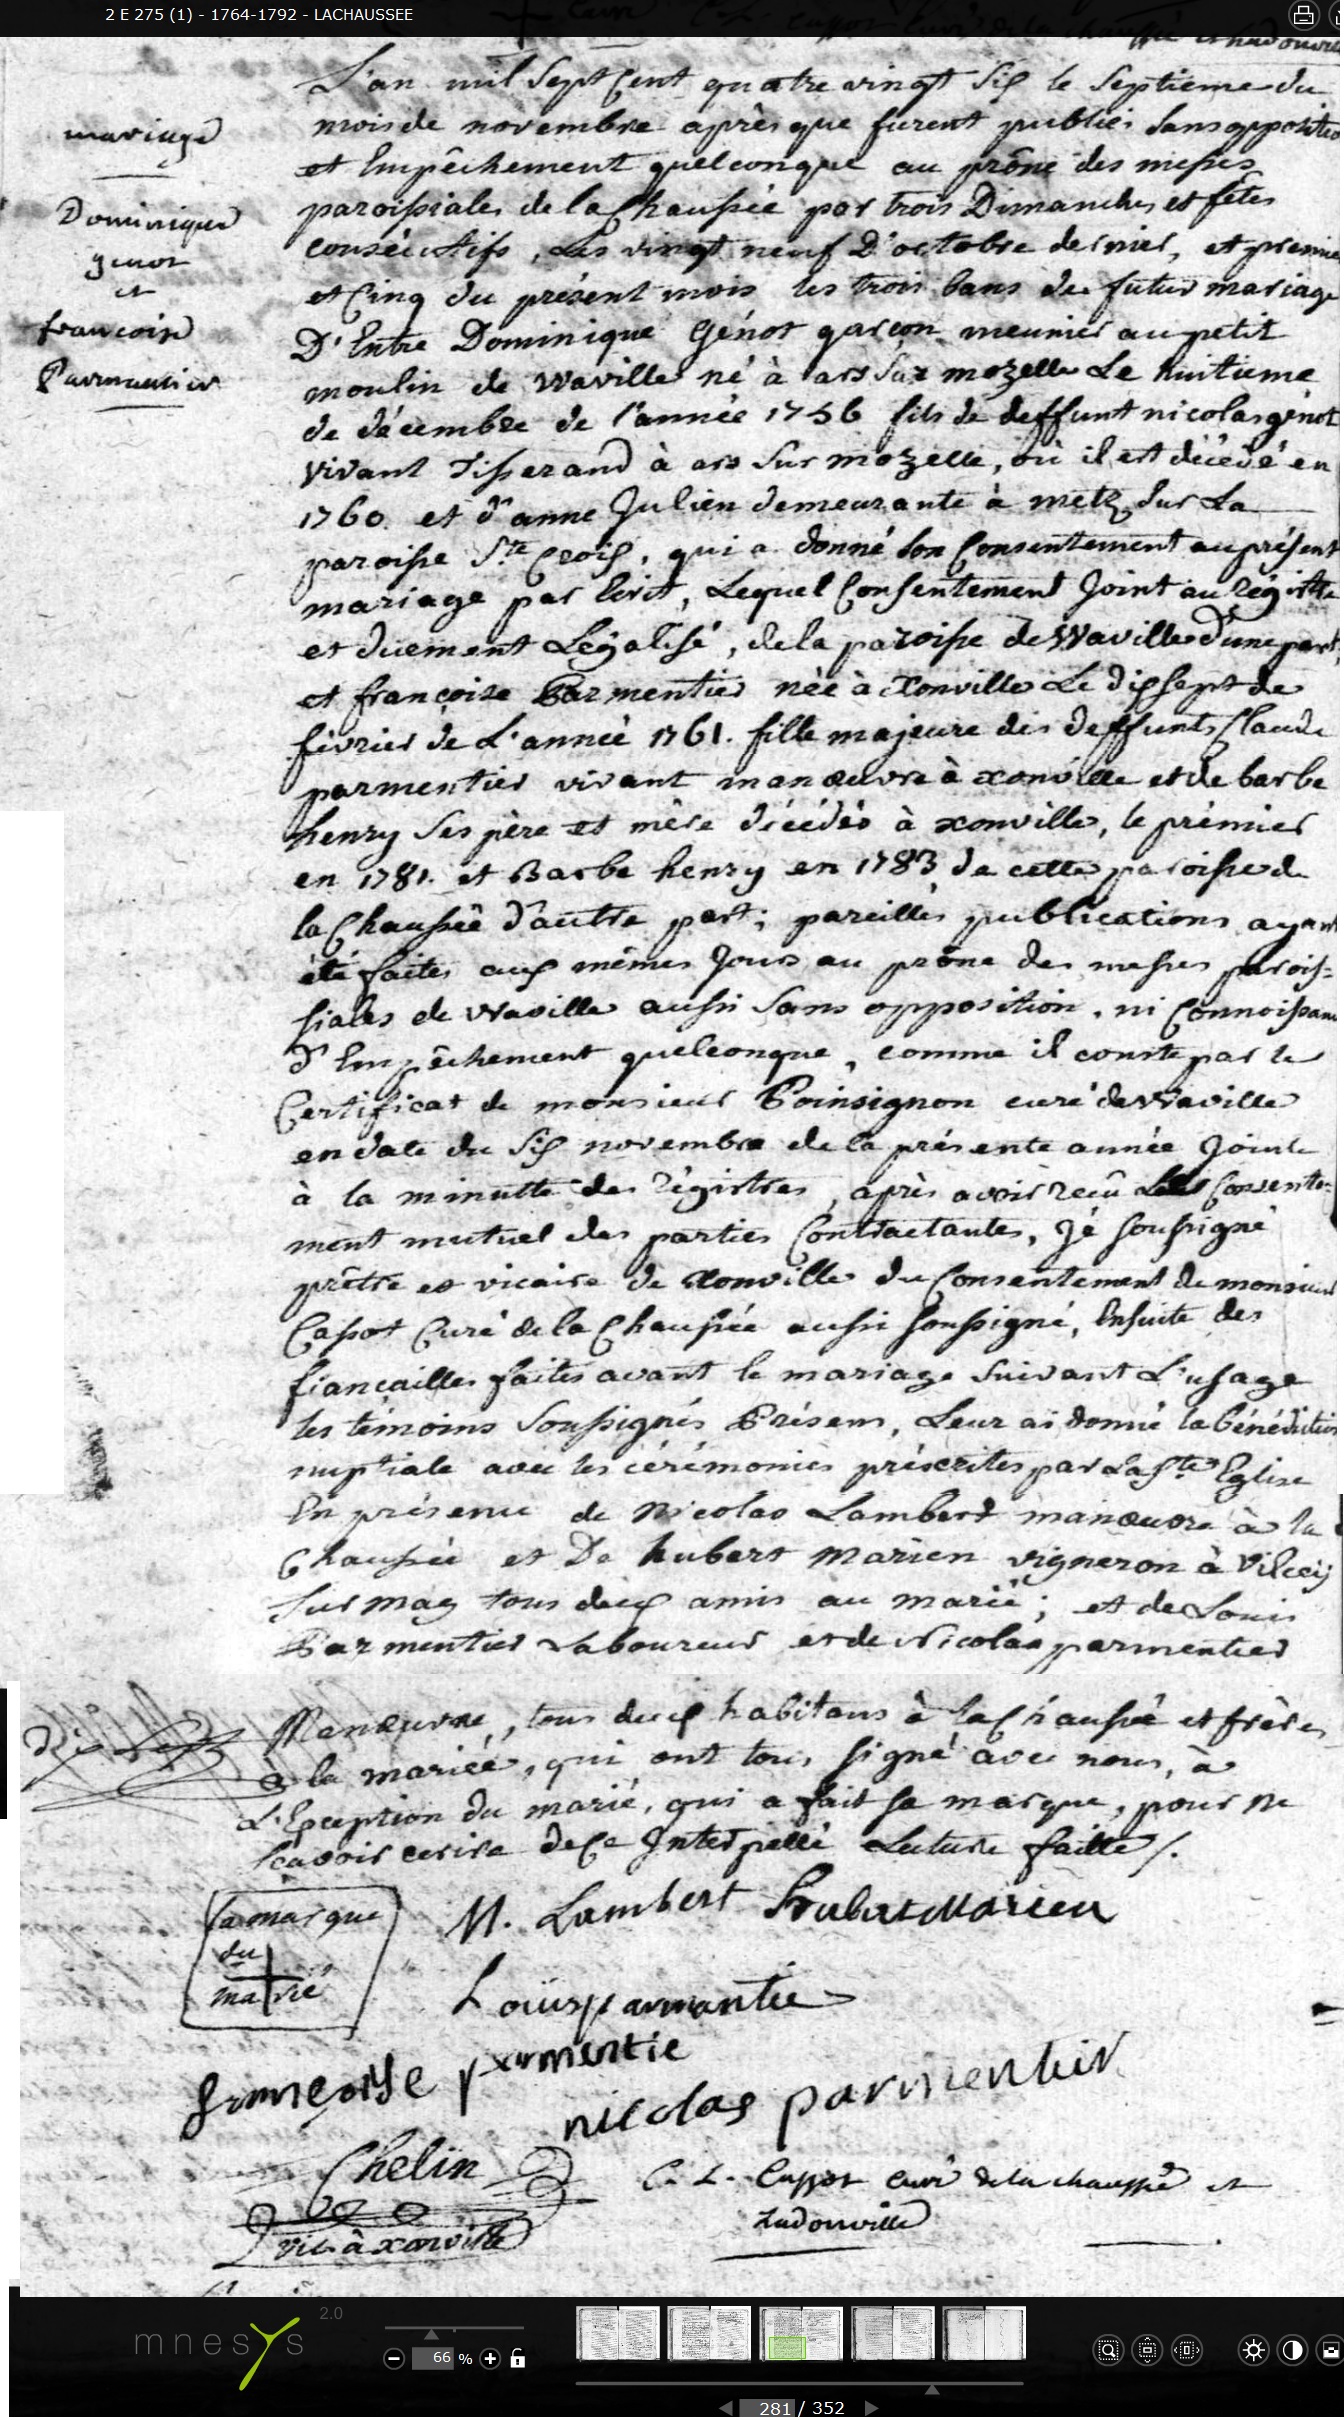 2 E 275 (1) - 1764-1792 - LACHAUSSEE
mariage
Dominique
genot
et
francoise
Parmantier
L'an mil Sept Cent quatre vingt Six le Septieme du
mois de novembre après que furent publiés Sans oppositio
et Empêchement quelconque au prône des messes
paroissiales de la Chaussée par trois Dimanches et fêtes
consécutifs, les vingt neuf D'octobre dernier, et premie
et Cinq du présent mois les trois bans de futur mariage
D'Entre Dominique Génot garçon meunier au petit
moulin de Waville né à ars Sur mozelle Le huitieme
de décembre de l'année 1756 fils de deffunt nicolas génot
vivant Tisserand à ars Sur mozelle, où il est décédé en
1760. et d'anne Julien demeurante à metz Sur La
paroisse Ste Croix, qui a donné Son Consentement au présent
mariage par Ecrit, Lequel Consentement Joint au régistre
et duement Légalisé, de la paroisse de Waville d'une part,
et françoise Parmentier née à Xonville Le dixsept de
février de L'année 1761. fille majeure des deffunts Claude
parmentier vivant manœuvre à xonville et de barbe
henry Ses père et mère décédés à xonville, le prémier
en 1781. et Barbe henry en 1783 de cette paroisse de
la Chaussée d'autre part; pareilles publications ayant
été faites aux mêmes Jours au prône des messes parois=
siales de Waville aussi Sans opposition, ni Connoissanc
d'Empêchement quelconque, comme il conste par le
Certificat de monsieur Poinsignon curé de Waville
en date du Six novembre de la présente année Jointe
à la minutte des régistres, après avoir reçû Le Consente=
ment mutuel des parties Contractantes, Jé soussigné
prêtre et vicaire de Xonville du Consentement de monsieur
Cassot Curé de la Chaussée aussi soussigné, Ensuite des
fiançailles faites avant le mariage Suivant L'usage
les témoins Soussignés Présens, Leur ai donné la bénédiction
nuptiale avec les cérémonies préscrites par La Ste Eglise
En présence de Nicolas Lambert manœuvre à la
Chaussée et De hubert Marien vigneron à Vilcey
Sur mag tous deux amis au marié; et de Louis
Parmentier Laboureur et de Nicolas parmentier
Manœuvre, tous deux habitans à la Chaussée et frères
a la mariée, qui ont tous signé avec nous, à
L'Exception du marié, qui a fait sa marque, pour ne
sçavoir ecrire de Ce Interpellé Lecture faitte /.
la marque
du
marié
N. Lambert Hubert Marien
Louis parmantie
françoise parmentie
nicolas parmentier
Chelin
vic. à xonville
C. L. Cassot curé de la chaussée et
hadonville
mnesys 2.0
66 %
281 / 352